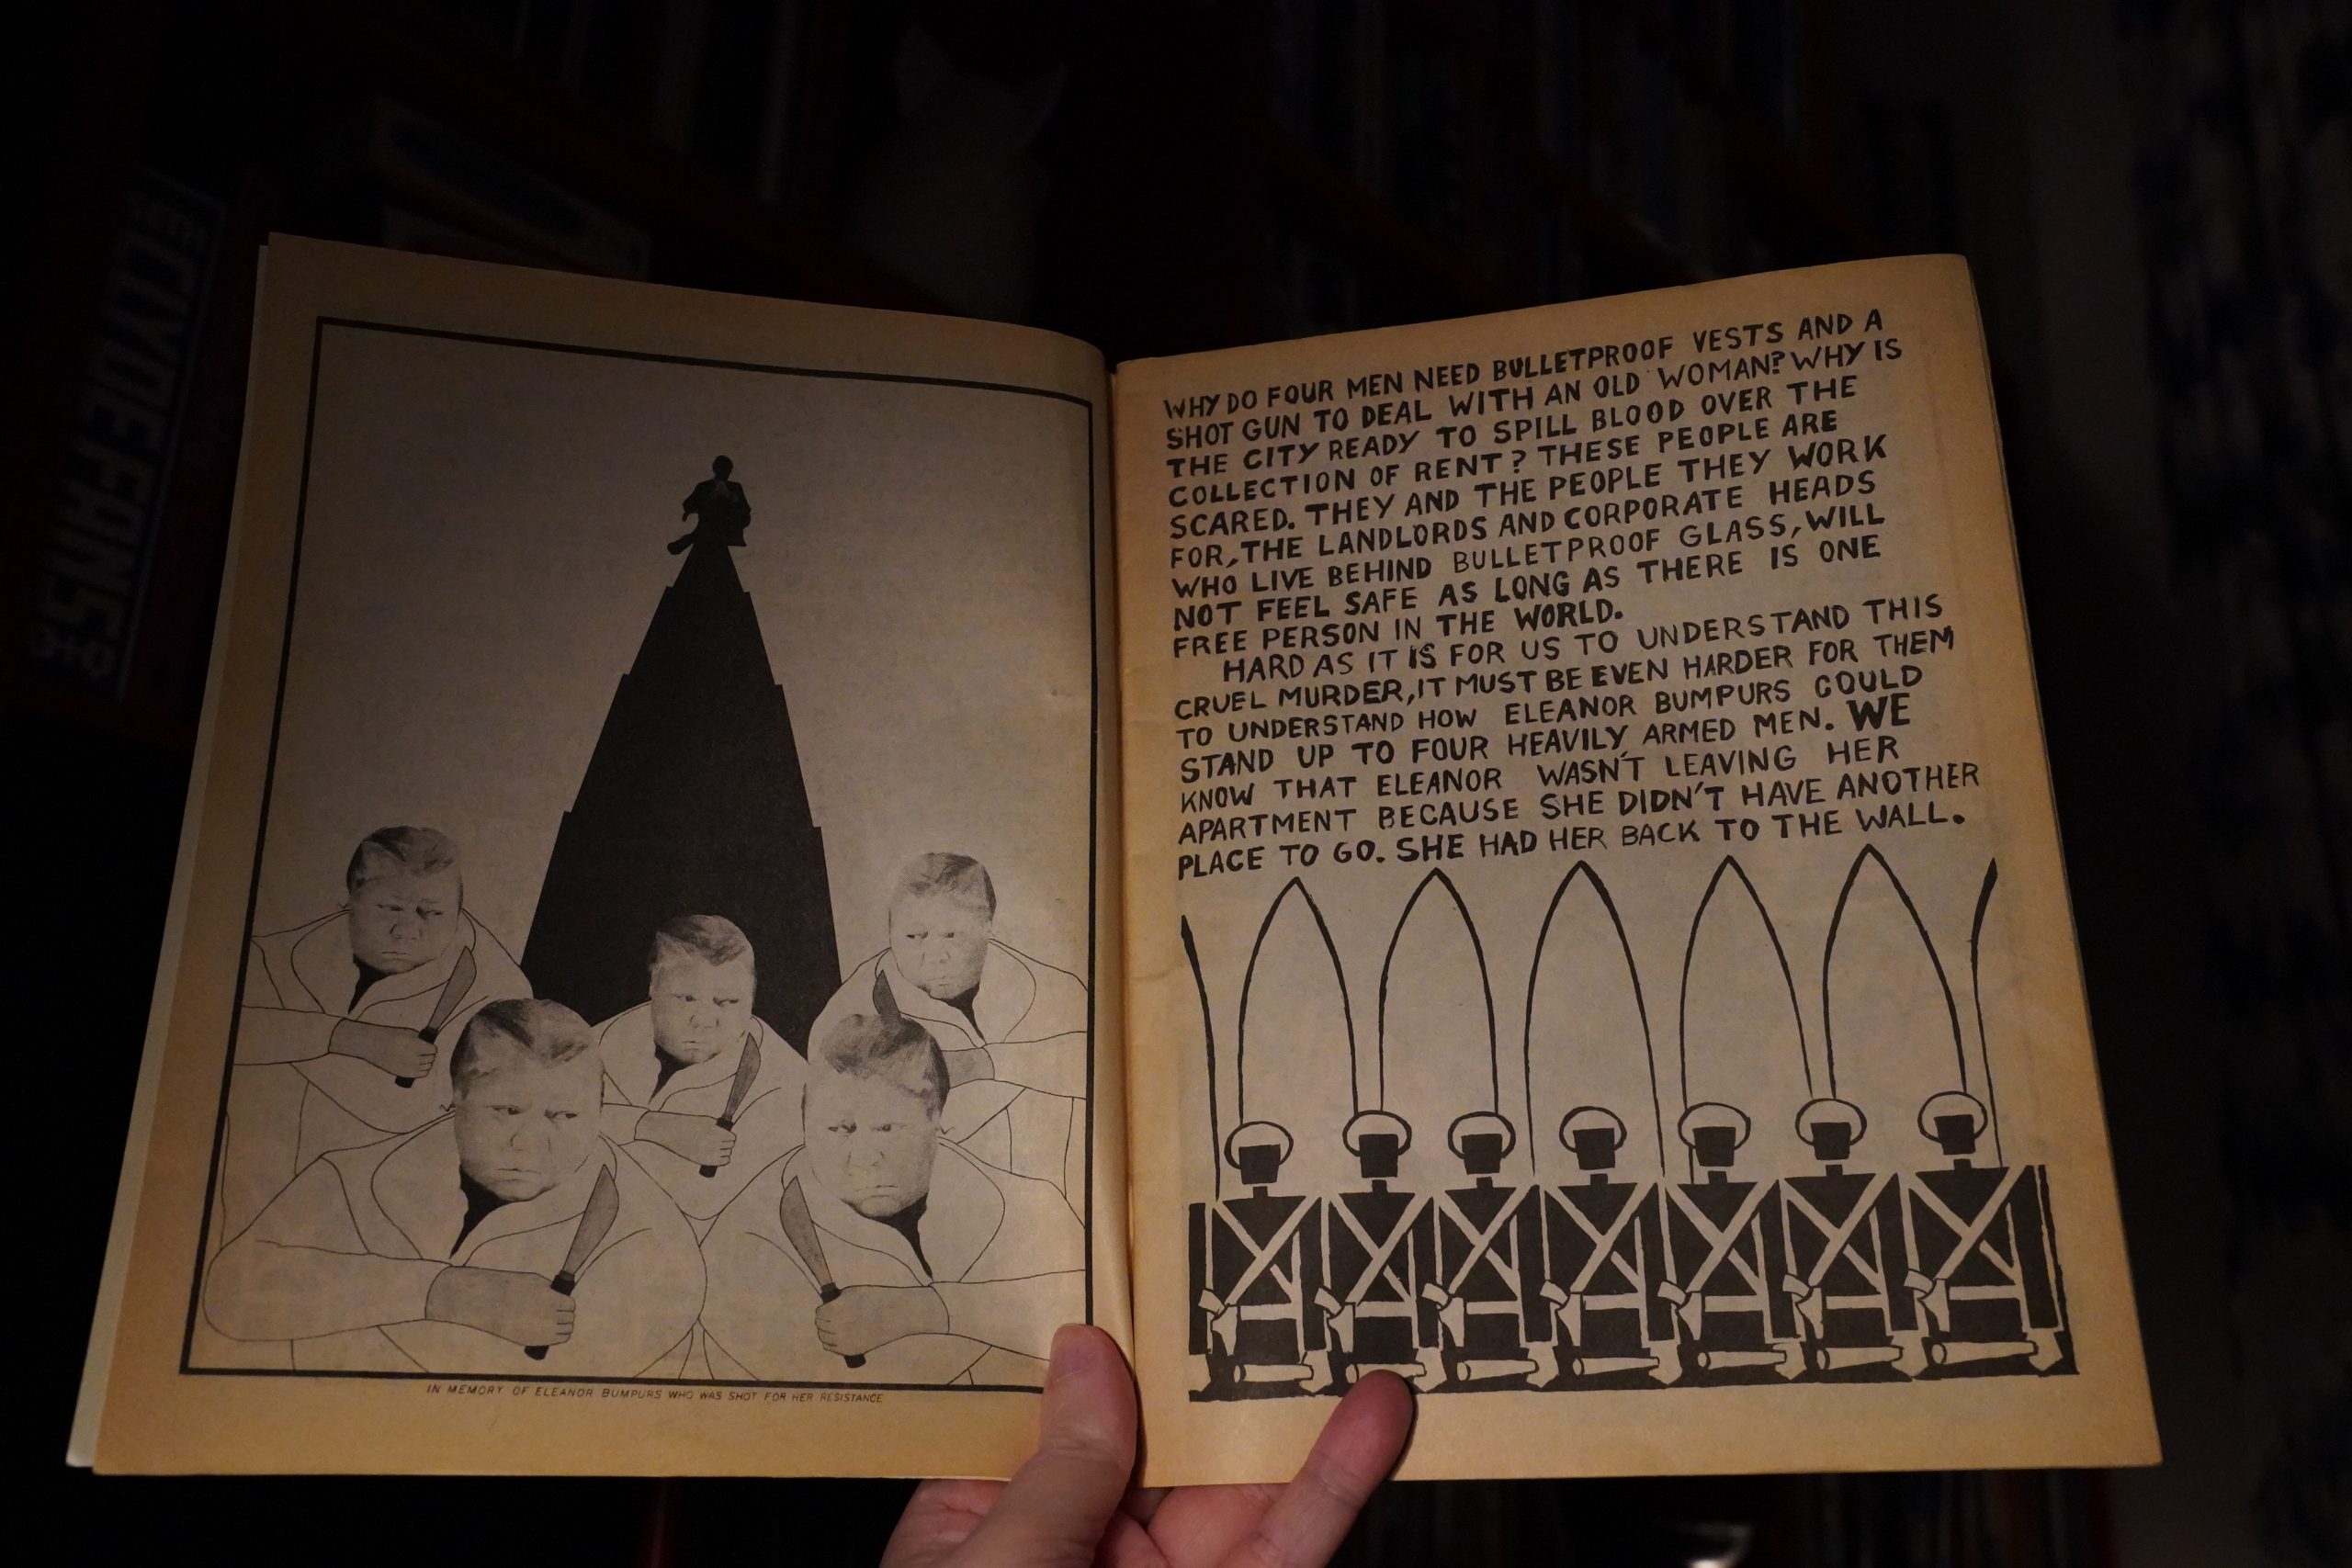 CLYDE FANS
IN MEMORY OF ELEANOR BUMPURS WHO WAS SHOT FOR HER RESISTANCE
WHY DO FOUR MEN NEED BULLETPROOF VESTS AND A
SHOT GUN TO DEAL WITH AN OLD WOMAN? WHY IS
THE CITY READY TO SPILL BLOOD OVER THE
COLLECTION OF RENT? THESE PEOPLE ARE
SCARED. THEY AND THE PEOPLE THEY WORK
FOR, THE LANDLORDS AND CORPORATE HEADS
WHO LIVE BEHIND BULLETPROOF GLASS, WILL
NOT FEEL SAFE AS LONG AS THERE IS ONE
FREE PERSON IN THE WORLD.
HARD AS IT IS FOR US TO UNDERSTAND THIS
CRUEL MURDER, IT MUST BE EVEN HARDER FOR THEM
TO UNDERSTAND HOW ELEANOR BUMPURS COULD
STAND UP TO FOUR HEAVILY ARMED MEN. WE
KNOW THAT ELEANOR WASN'T LEAVING HER
APARTMENT BECAUSE SHE DIDN'T HAVE ANOTHER
PLACE TO GO. SHE HAD HER BACK TO THE WALL.